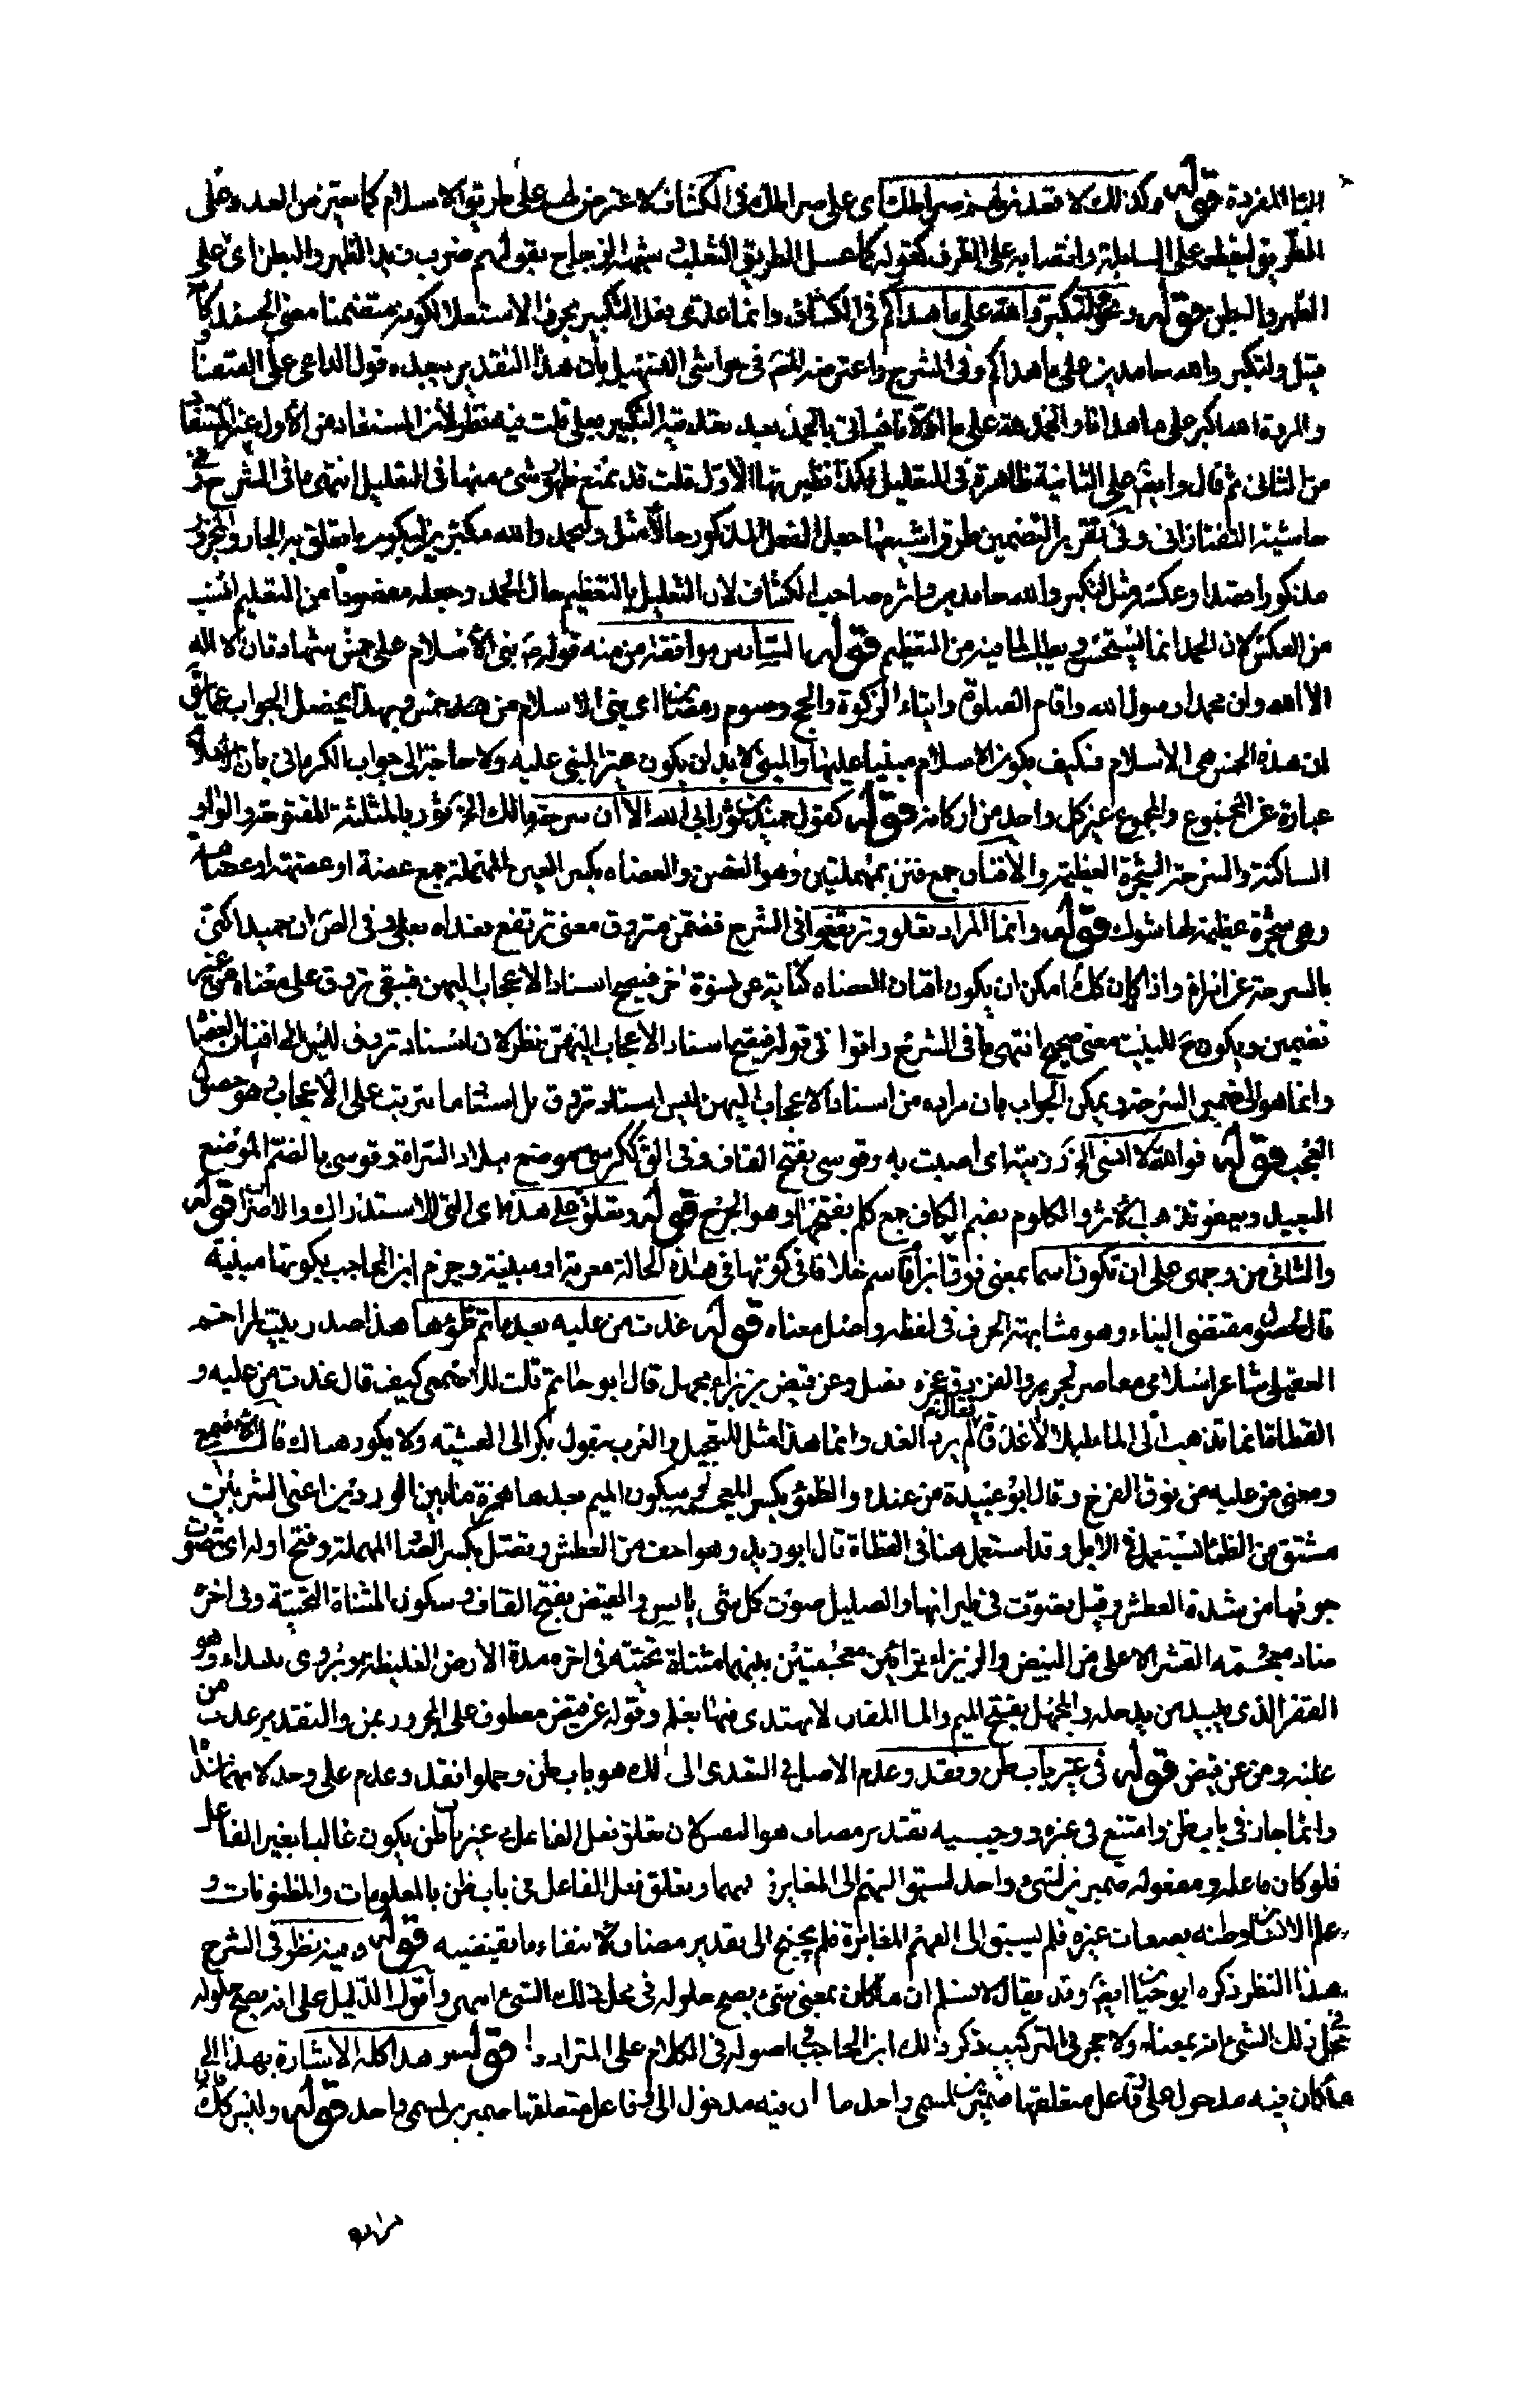 الباء المفردة قوله وكذلك لاقعدن لهم صراطك اى على صراطك فى الكشاف لاعترض لهم على طريق الاسلام كما يعترض العدو على
الطريق ليقطعه على السابلة وانتصابه على الظرف كقوله كما عسل الطريق الثعلب وشبهه الزجاج بقولهم ضرب زيد الظهر والبطن اى على
الظهر والبطن قوله ونحو ولتكبروا الله على ما هداكم فى الكشاف وانما عدى فعل التكبير بحرف الاستعلا لكونه متضمنا معنى الحمد كانه
قيل ولتكبروا الله حامدين على ما هداكم وفى الشرح واعترضه المص فى حواشى التسهيل بان هذا التقدير يبعده قول الداعى على الصفا
والمروة الله اكبر على ما هدانا والحمد لله على ما اولانا فياتى بالحمد بعد تعدية التكبير بعلى قلت فيه نظر لان المستفاد من الاول غير المستفاد
من الثانى ثم قال وايضا على الثانية ظاهرة فى التعليل فكذا نظيرتها الاولى قلت قد يمنع ظهور شىء منهما فى التعليل انتهى ما فى الشرح وفى
حاشية التفتازانى وفى تقرير التضمين طرق اشيعها جعل الفعل المذكور حالا مثل ولتحمدوا الله مكبرين ليكون ما تعلق به الجار والمجرور
مذكورا قصدا وعكسه مثل لتكبروا الله حامدين واثره صاحب الكشاف لان التعليل بالتعظيم حال الحمد وجعله مقصودا من التعليم انسب
من العكس لان الحمد انما يستحسن ويطلب لما فيه من التعظيم قوله السادس موافقة من منه قوله صم بنى الاسلام على خمس شهادة ان لا اله
الا الله وان محمدا رسول الله واقام الصلوة وايتاء الزكوة والحج وصوم رمضان اى بنى الاسلام من هذه خمس وبهذا يحصل الجواب عما يقال
ان هذه الخمس هى الاسلام فكيف يكون الاسلام مبنيا عليها والمبنى لا بد ان يكون غير المبنى عليه ولا حاجة الى جواب الكرمانى بان الاسلام
عبارة عن المجموع والمجموع غير كل واحد من اركانه قوله كقول حميد بن ثور ابى الله الا ان سرحة مالك الخ ثور بالمثلثة المفتوحة والواو
الساكنة والسرحة الشجرة العظيمة والافنان جمع فنن بمهملتين وهو الغصن والعضاه بكسر العين المهملة جمع عضة او عضهة او عضاهة
وهى شجرة عظيمة لها شوك قوله وانما المراد تعلو وترتفع وفى الشرح فضمن تروق معنى ترتفع فعداه بعلى وفى الص ان حميدا كنى
بالسرحة عن امراة واذا كان كذلك امكن ان يكون افنان العضاه كناية عن نسوة اخر فيصح اسناد الاعجاب اليهن فيبقى تروق على معناه من غير
تضمين ويكون للبيت معنى صحيح انتهى ما فى الشرح واقول فى قوله فيصح اسناد الاعجاب اليهن نظر لان اسناد تروق ليس الى افنان العضاه
وانما هو الى ضمير السرحة ويمكن الجواب بان مراده من اسناد الاعجاب اليهن ليس اسناد تروق بل اسناد ما يترتب على الاعجاب وهو حصول
العجب قوله فوالله لا انسى الخ رزيته اى اصبت به وقوسى بفتح القاف وفى الق كسكرى موضع ببلاد السراة وقوسى بالضم الموضع
البعيد ويعفو تذهب الاثر والكلوم بضم الكاف جمع كلم بفتحها وهو الجرح قوله وتعلق على هذه اى التى للاستدراك والاضراب قوله
والثانى من وجهى على ان تكون اسما بمعنى فوق ابن ام قاسم خلافا فى كونها فى هذه الحالة معربة او مبنية وجزم ابن الحاجب بكونها مبنية
قال لحصول مقتضى البناء وهو مشابهة الحرف فى لفظه واصل معناه قوله غدت من عليه بعد ما تم ظمؤها هذا صدر بيت لمزاحم
العقيلى شاعر اسلامى معاصر لجرير والفرزدق عجزه تصل وعن قيض بزيزاء مجهل قال ابو حاتم قلت للاصمعى كيف قال غدت من عليه و
القطاة انما تذهب الى الماء ليلا لا غدوة فقال لم يرد الغدو وانما هذا مثل للتعجيل والعرب تقول بكر الى العشية ولا يكون هناك قال الاصمعى
ومعنى من عليه من فوق الفرخ وقال ابو عبيدة من عنده والظمؤ بكسر المعجمة وسكون الميم بعدها همزة ما بين الوردين اعنى الشربتين
مشتق من الظماء يستعمل فى الابل وقد استعمل هنا فى القطاة قال ابو زيد وهو احق من العطش وتصل بكسر الصاد المهملة وفتح اوله اى تصوت
جوفها من شدة العطش وقيل تصوت فى طيرانها والصليل صوت كل شىء يابس والقيض بفتح القاف وسكون المثناة التحتية وفى اخره
ضاد معجمة القشر الاعلى من البيض والزيزاء بزائين معجمتين بينهما مثناة تحتية فى اخره مدة الارض الغليظة ويروى ببيداء وهو
القفر الذى يبيد من يدخله والمجهل بفتح الميم والها القفار لا يهتدى فيها بعلم وقوله عن قيض معطوف على المجرور بمن والتقدير غدت من
عليه ومن عن قيض قوله فى غير باب ظن وفقد وعدم الاصل فى التعدى الى ذلك هو باب ظن وحملوا فقد وعدم على وجد لانهما ضداه
وانما جاز فى باب ظن وامتنع فى غيره ووجب فيه تقدير مضاف هو النفس لان تعلق فعل الفاعل فى غير باب ظن يكون غالبا بغير الفاعل
فلو كان فاعله ومفعوله ضميرين لشىء واحد لسبق الفهم الى المغايرة بينهما وتعلق فعل الفاعل فى باب ظن بالمعلومات والمظنونات و
علم الانسان وظنه بصفات غيره فلم يسبق الى الفهم المغايرة فلم يحتج الى تقدير مضاف لانتفاء ما يقتضيه قوله وفيه نظر فى الشرح
هذا النظر ذكره ابو حيان ايضا وقد يقال لا نسلم ان ما كان بمعنى شىء يصح حلوله فى محل ذلك الشىء انتهى واقول الدليل على انه يصح حلوله
فى محل ذلك الشىء انه بمعناه ولا حجر فى التركيب ذكر ذلك ابن الحاجب فى اصوله فى الكلام على المترادف قوله هذا كله الاشارة بهذا الى
ما كان فيه مدخول على وفاعل متعلقها ضميرين لمسمى واحد ما كان فيه مدخول الى وفاعل متعلقها ضميرين لمسمى واحد قوله وليس كذلك